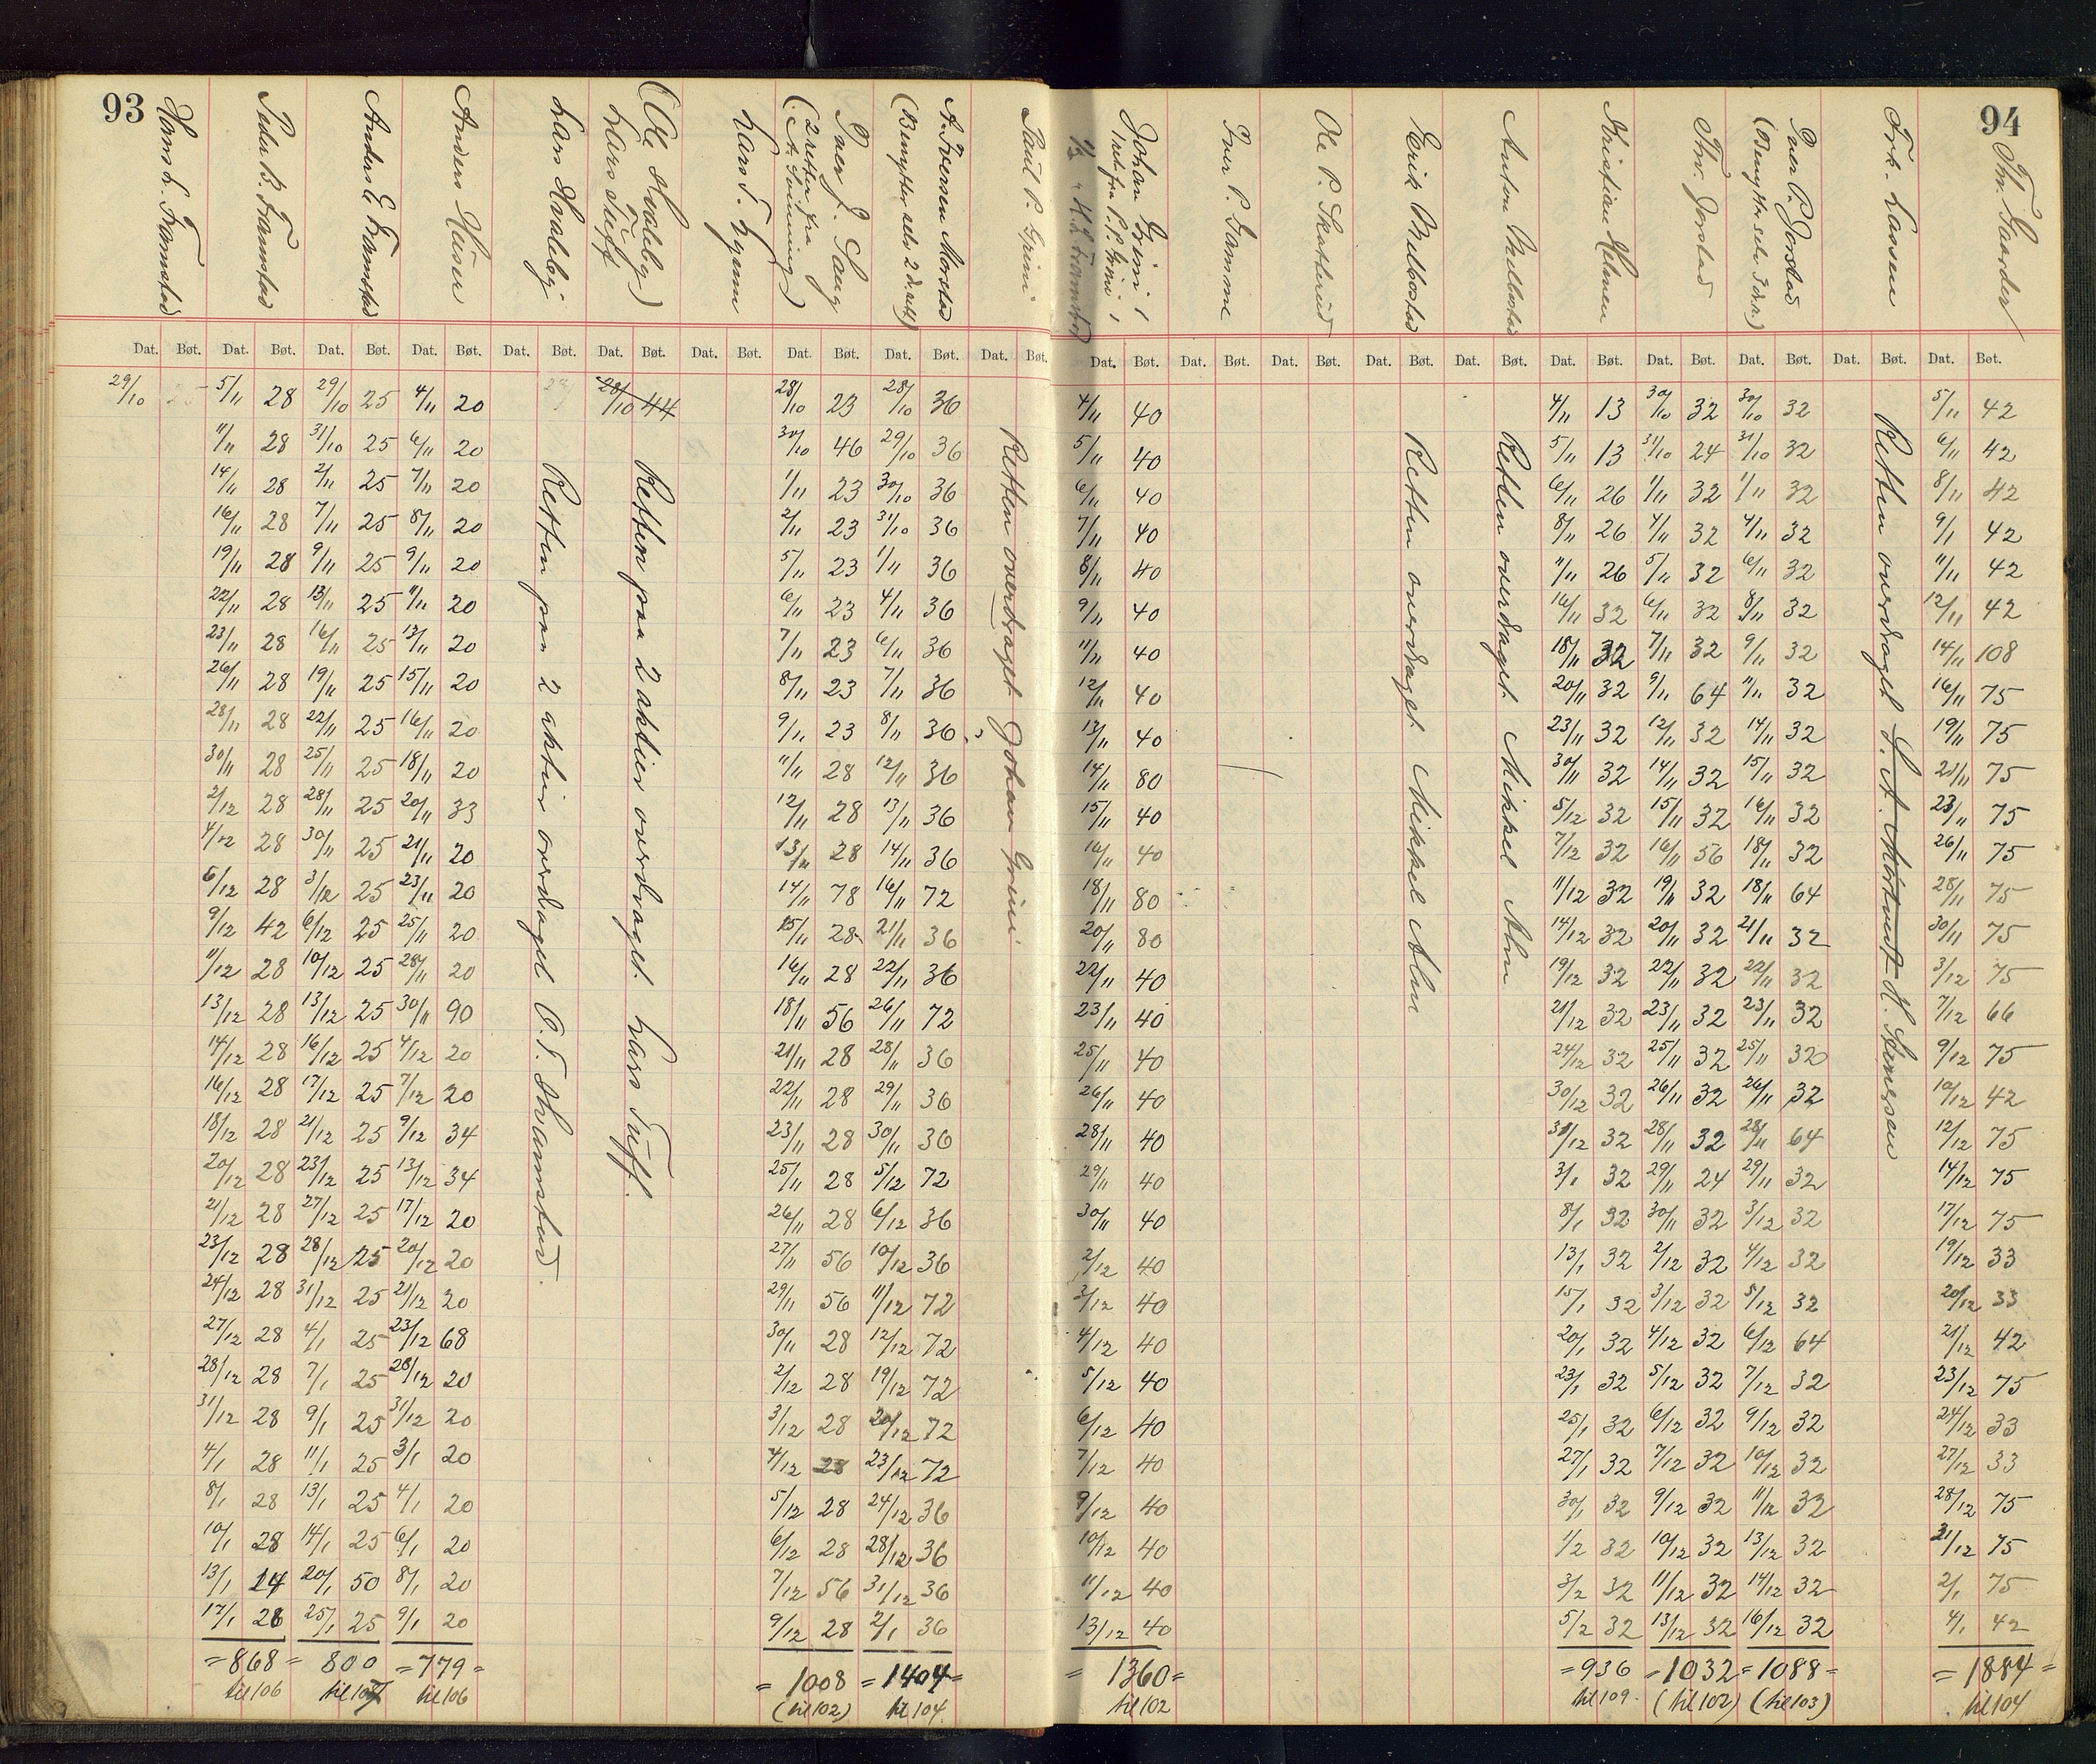 93
94
Hans L. Framstad
Peder B. Framstad
Anders E. Framstad
Anders Huser
Lars Hvaleby
(Ole Hvaleby)
Lars Tuff
Lars T. Hyenn
Paer J. Saug
(2 retter fra
A. Svinning)
A. Iversen Morstad
(Benytter selv 2 d. rett)
Paul P. Grini
Johan Grini
1 ret fra P. P. Grini
Iver P. Damme
Ole P. Skatterud
Erik Melbostad
Anton Melbostad
Kristian Helmen
Thv. Jorstad
Paer P. Jorstad
(Benytter selv 1 d. r.)
Frk. Lassen
Th. Gaarder
Dat. Bøt. Dat. Bøt. Dat. Bøt. Dat. Bøt. Dat. Bøt. Dat. Bøt. Dat. Bøt. Dat. Bøt. Dat. Bøt. Dat. Bøt.
Dat. Bøt. Dat. Bøt. Dat. Bøt. Dat. Bøt. Dat. Bøt. Dat. Bøt. Dat. Bøt. Dat. Bøt. Dat. Bøt. Dat. Bøt.
29/10
5/11 28
11/11 28
14/11 28
16/11 28
19/11 28
22/11 28
23/11 28
26/11 28
28/11 28
30/11 28
2/12 28
4/12 28
6/12 28
9/12 42
11/12 28
13/12 28
14/12 28
16/12 28
18/12 28
20/12 28
21/12 28
23/12 28
24/12 28
27/12 28
28/12 28
31/12 28
4/1 28
8/1 28
10/1 28
13/1 14
17/1 28
= 868 =
til 106
29/10 25
31/10 25
2/11 25
7/11 25
9/11 25
13/11 25
16/11 25
19/11 25
22/11 25
25/11 25
28/11 25
30/11 25
3/12 25
6/12 25
10/12 25
13/12 25
16/12 25
17/12 25
21/12 25
23/12 25
27/12 25
28/12 25
31/12 25
4/1 25
7/1 25
9/1 25
11/1 25
13/1 25
14/1 25
20/1 50
25/1 25
800
til 107
4/11 20
6/11 20
7/11 20
8/11 20
9/11 20
11/11 20
13/11 20
15/11 20
16/11 20
18/11 20
20/11 33
21/11 20
23/11 20
25/11 20
28/11 20
30/11 90
4/12 20
7/12 20
9/12 34
13/12 34
17/12 20
20/12 20
21/12 20
23/12 68
28/12 20
31/12 20
3/1 20
4/1 20
6/1 20
8/1 20
9/1 20
= 779 =
til 106
Retten paa 2 aktier overdraget O. T. Thramstad.
28/10 44
Retten paa 2 aktier overdraget. Lars Tuff.
28/10 23
30/10 46
1/11 23
2/11 23
5/11 23
6/11 23
7/11 23
8/11 23
9/11 23
11/11 28
12/11 28
13/11 28
14/11 78
15/11 28
16/11 28
18/11 56
21/11 28
22/11 28
23/11 28
25/11 28
26/11 28
27/11 56
29/11 56
30/11 28
2/12 28
3/12 28
4/12 28
5/12 28
6/12 28
7/12 56
9/12 28
= 1008
(til 102)
28/10 36
29/10 36
30/10 36
31/10 36
1/11 36
4/11 36
6/11 36
7/11 36
8/11 36
12/11 36
13/11 36
14/11 36
16/11 72
21/11 36
22/11 36
26/11 72
28/11 36
29/11 36
30/11 36
5/12 72
6/12 36
10/12 36
11/12 72
12/12 72
19/12 72
20/12 72
23/12 72
24/12 36
28/12 36
31/12 36
2/1 36
= 1404 =
til 104
Retten overdraget Johan Grini
4/11 40
5/11 40
6/11 40
7/11 40
8/11 40
9/11 40
11/11 40
12/11 40
13/11 40
14/11 80
15/11 40
16/11 40
18/11 80
20/11 80
22/11 40
23/11 40
25/11 40
26/11 40
28/11 40
29/11 40
30/11 40
2/12 40
3/12 40
4/12 40
5/12 40
6/12 40
7/12 40
9/12 40
10/12 40
11/12 40
13/12 40
= 1360 =
til 102
Retten overdraget. Mikkel Alm
Retten overdraget. Mikkel Alm
4/11 13
5/11 13
6/11 26
8/11 26
11/11 26
16/11 32
18/11 32
20/11 32
23/11 32
30/11 32
5/12 32
7/12 32
11/12 32
14/12 32
19/12 32
21/12 32
24/12 32
30/12 32
31/12 32
3/1 32
8/1 32
13/1 32
15/1 32
20/1 32
23/1 32
25/1 32
27/1 32
30/1 32
1/2 32
3/2 32
5/2 32
= 936
til 109
30/10 32
31/10 24
1/11 32
4/11 32
5/11 32
6/11 32
7/11 32
9/11 64
12/11 32
14/11 32
15/11 32
16/11 56
19/11 32
20/11 32
22/11 32
23/11 32
25/11 32
26/11 32
28/11 32
29/11 24
30/11 32
2/12 32
3/12 32
4/12 32
5/12 32
6/12 32
7/12 32
9/12 32
10/12 32
11/12 32
13/12 32
= 1032
(til 102)
30/10 32
31/10 32
1/11 32
4/11 32
6/11 32
8/11 32
9/11 32
11/11 32
14/11 32
15/11 32
16/11 32
18/11 32
18/11 64
21/11 32
22/11 32
23/11 32
25/11 32
26/11 32
28/11 64
29/11 32
3/12 32
4/12 32
5/12 32
6/12 64
7/12 32
9/12 32
10/12 32
11/12 32
13/12 32
14/12 32
16/12 32
= 1088 =
(til 103)
Retten overdraget H. Simensen
5/11 42
6/11 42
8/11 42
9/11 42
11/11 42
12/11 42
14/11 108
16/11 75
19/11 75
21/11 75
23/11 75
26/11 75
28/11 75
30/11 75
3/12 75
7/12 66
9/12 75
10/12 42
12/12 75
14/12 75
17/12 75
19/12 33
20/12 33
21/12 42
23/12 75
24/12 33
27/12 33
28/12 75
31/12 75
2/1 75
4/1 42
= 1884 =
til 104